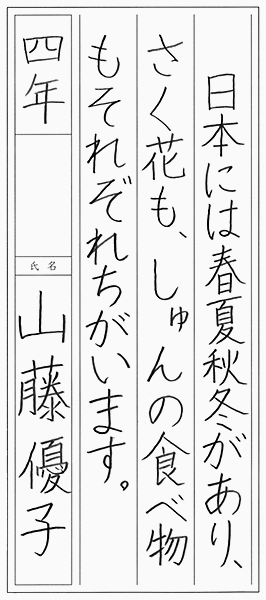 日本には春夏秋冬があり、
さく花も、しゅんの食べ物
もそれぞれちがいます。
四年
氏名
山藤優子